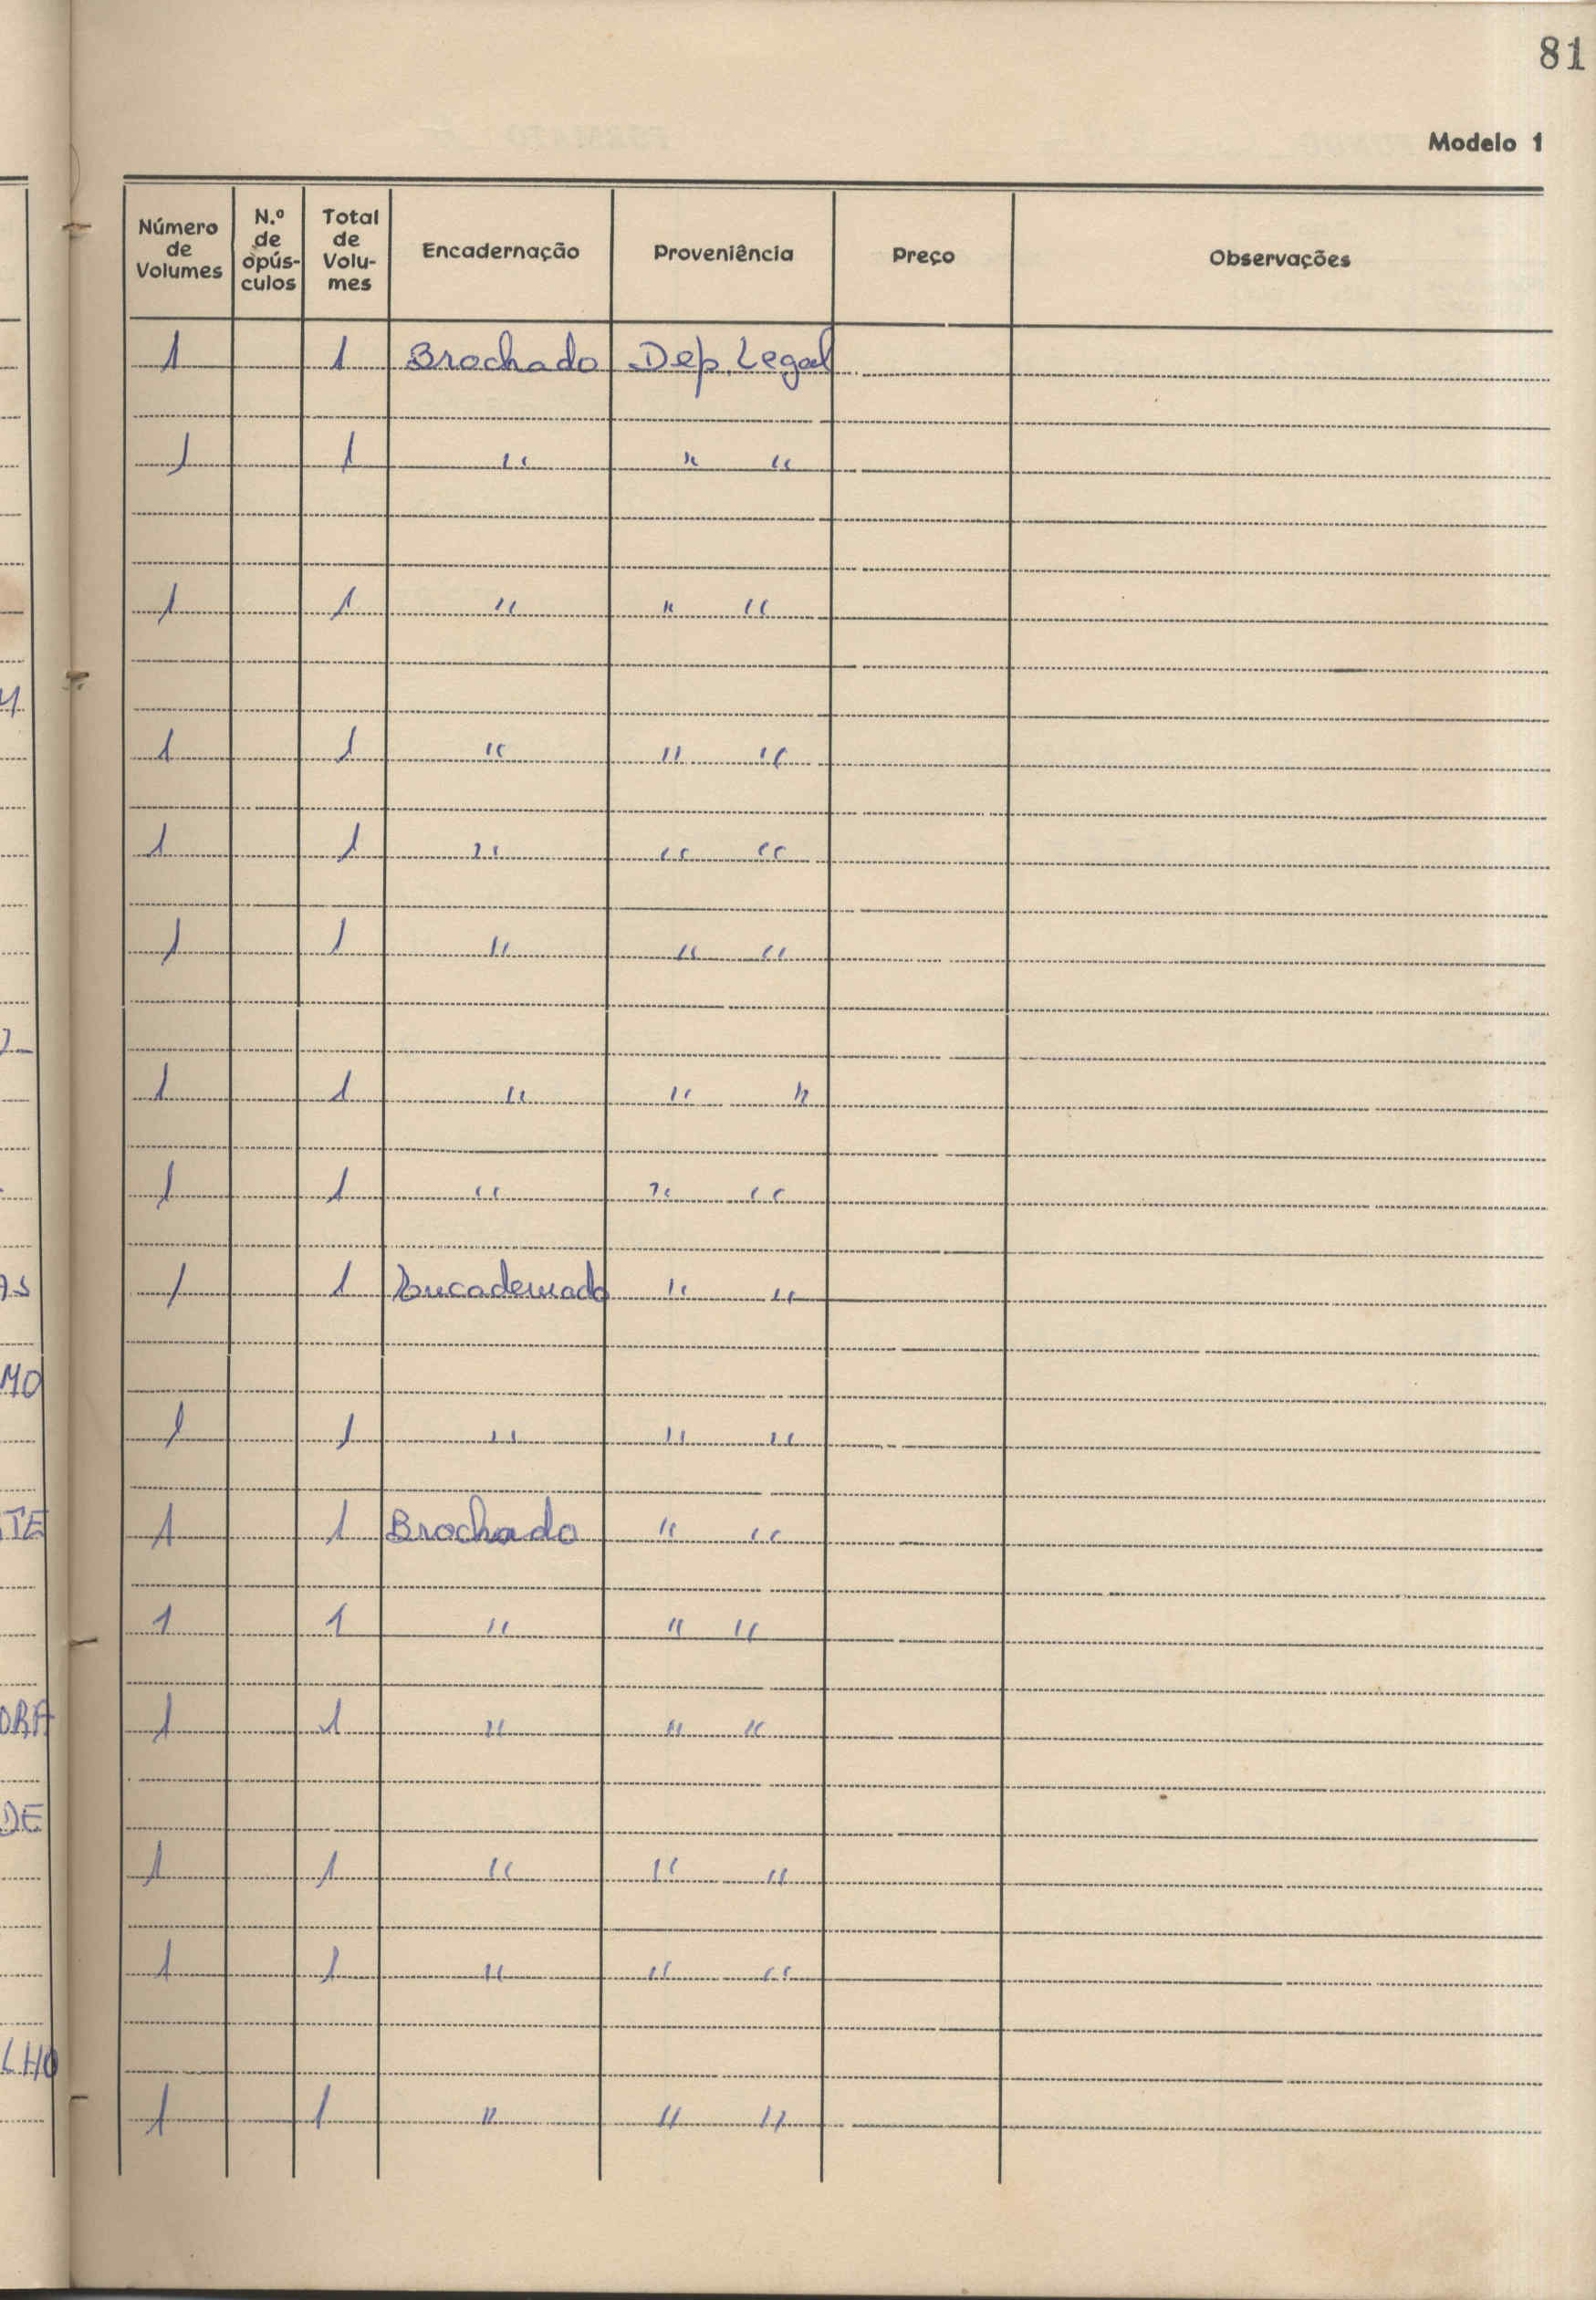 81
Modelo 1
Número de Volumes | N.º de opús-culos | Total de Volu-mes | Encadernação | Proveniência | Preço | Observações
1 | | 1 | Brochado | Dep. Legal
1 | | 1 | " | " "
1 | | 1 | " | " "
1 | | 1 | " | " "
1 | | 1 | " | " "
1 | | 1 | " | " "
1 | | 1 | " | " "
1 | | 1 | " | " "
1 | | 1 | Encadernado | " "
1 | | 1 | " | " "
1 | | 1 | Brochado | " "
1 | | 1 | " | " "
1 | | 1 | " | " "
1 | | 1 | " | " "
1 | | 1 | " | " "
1 | | 1 | " | " "